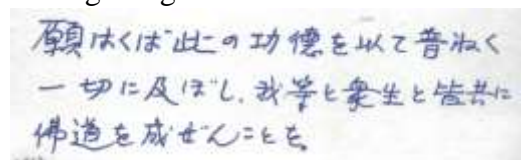 願はくは此の功徳を以て普ねく
一切に及ぼし、我等と衆生と皆共に
佛道を成ぜんことを。